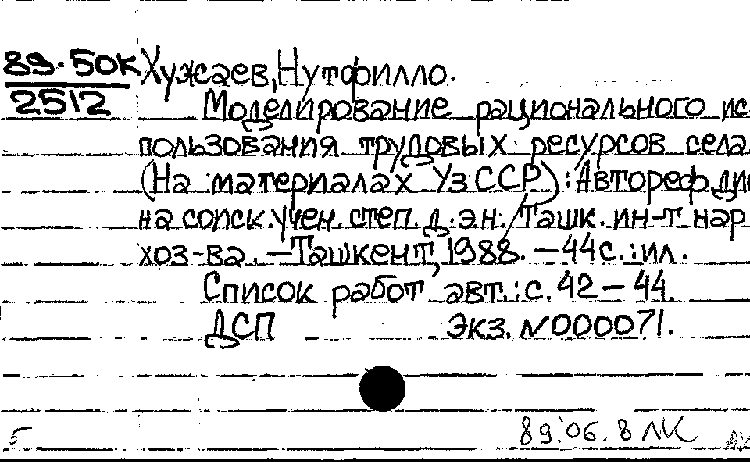 89-50К
2512
Хужаев, Нутфилло.
Моделирование рационального ис
пользования трудовых ресурсов села
(На материалах УзССР): Автореф. дис
на соиск. учен. степ. д. э. н. Ташк. ин-т. нар.
хоз-ва. — Ташкент, 1988. — 44 с.: ил.
Список работ авт.: с. 42 — 44.
ДСП Экз. N000071.
5 89.06.8 ЛК